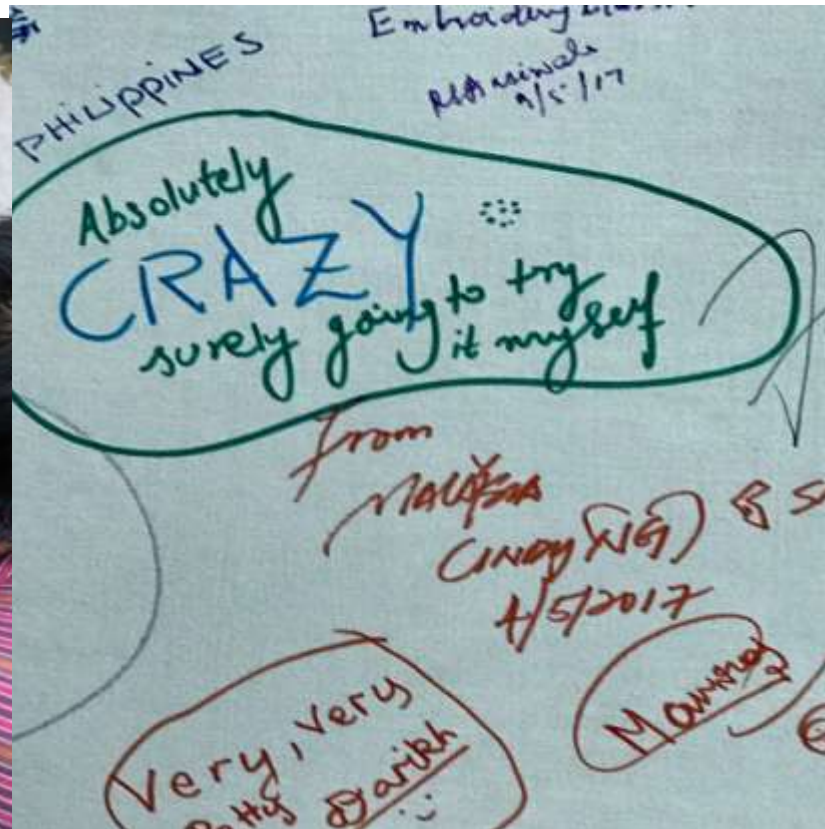 PHILIPPINES
Embroidery
9/5/17
Absolutely
CRAZY
surely going to try
it myself
From
MALAYSIA
CINDY (NG)
4/5/2017
Very, very